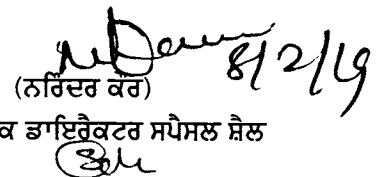 8/2/19
(ਨਰਿੰਦਰ ਕੌਰ)
ਕ ਡਾਇਰੈਕਟਰ ਸਪੈਸਲ ਸ਼ੈਲ